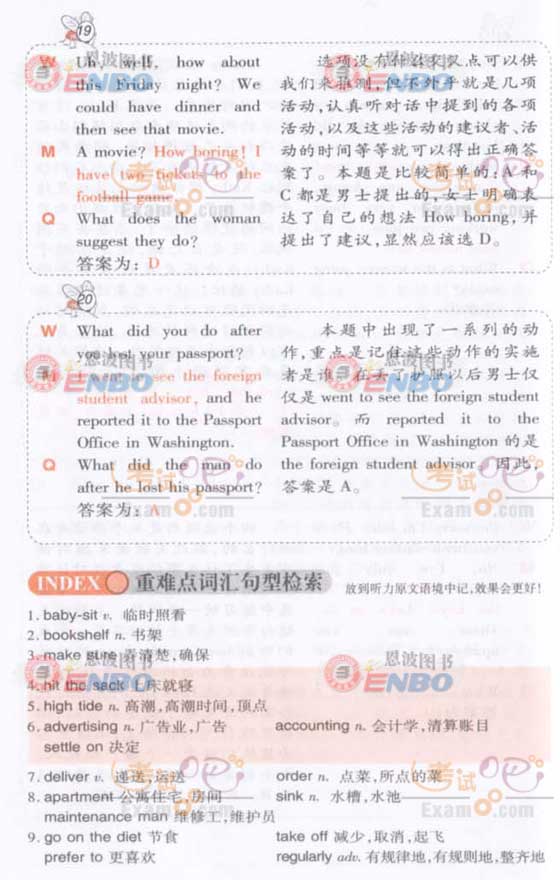 19
W Uh, well, how about
this Friday night? We
could have dinner and
then see that movie.
M A movie? How boring! I
have two tickets to the
football game.
Q What does the woman
suggest they do?
答案为: D
选项没有什么交叉点可以供
我们来推测,但不外乎就是几项
活动,认真听对话中提到的各项
活动,以及这些活动的建议者、活
动的时间等等就可以得出正确答
案了。本题是比较简单的:A和
C都是男士提出的,女士明确表
达了自己的想法 How boring,并
提出了建议,显然应该选 D。
20
W What did you do after
you lost your passport?
M I went to see the foreign
student advisor, and he
reported it to the Passport
Office in Washington.
Q What did the man do
after he lost his passport?
答案为: A
本题中出现了一系列的动
作,重点是记住这些动作的实施
者是谁。在丢了护照以后男士仅
仅是 went to see the foreign student
advisor。而 reported it to the
Passport Office in Washington 的是
the foreign student advisor。因此,
答案是 A。
INDEX 重难点词汇句型检索 放到听力原文语境中记,效果会更好!
1. baby-sit v. 临时照看
2. bookshelf n. 书架
3. make sure 弄清楚,确保
4. hit the sack 上床就寝
5. high tide n. 高潮,高潮时间,顶点
6. advertising n. 广告业,广告 accounting n. 会计学,清算账目
settle on 决定
7. deliver v. 递送,运送 order n. 点菜,所点的菜
8. apartment 公寓住宅,房间 sink n. 水槽,水池
maintenance man 维修工,维护员
9. go on the diet 节食 take off 减少,取消,起飞
prefer to 更喜欢 regularly adv. 有规律地,有规则地,整齐地
恩波图书
ENBO
考试吧
Exam8.com